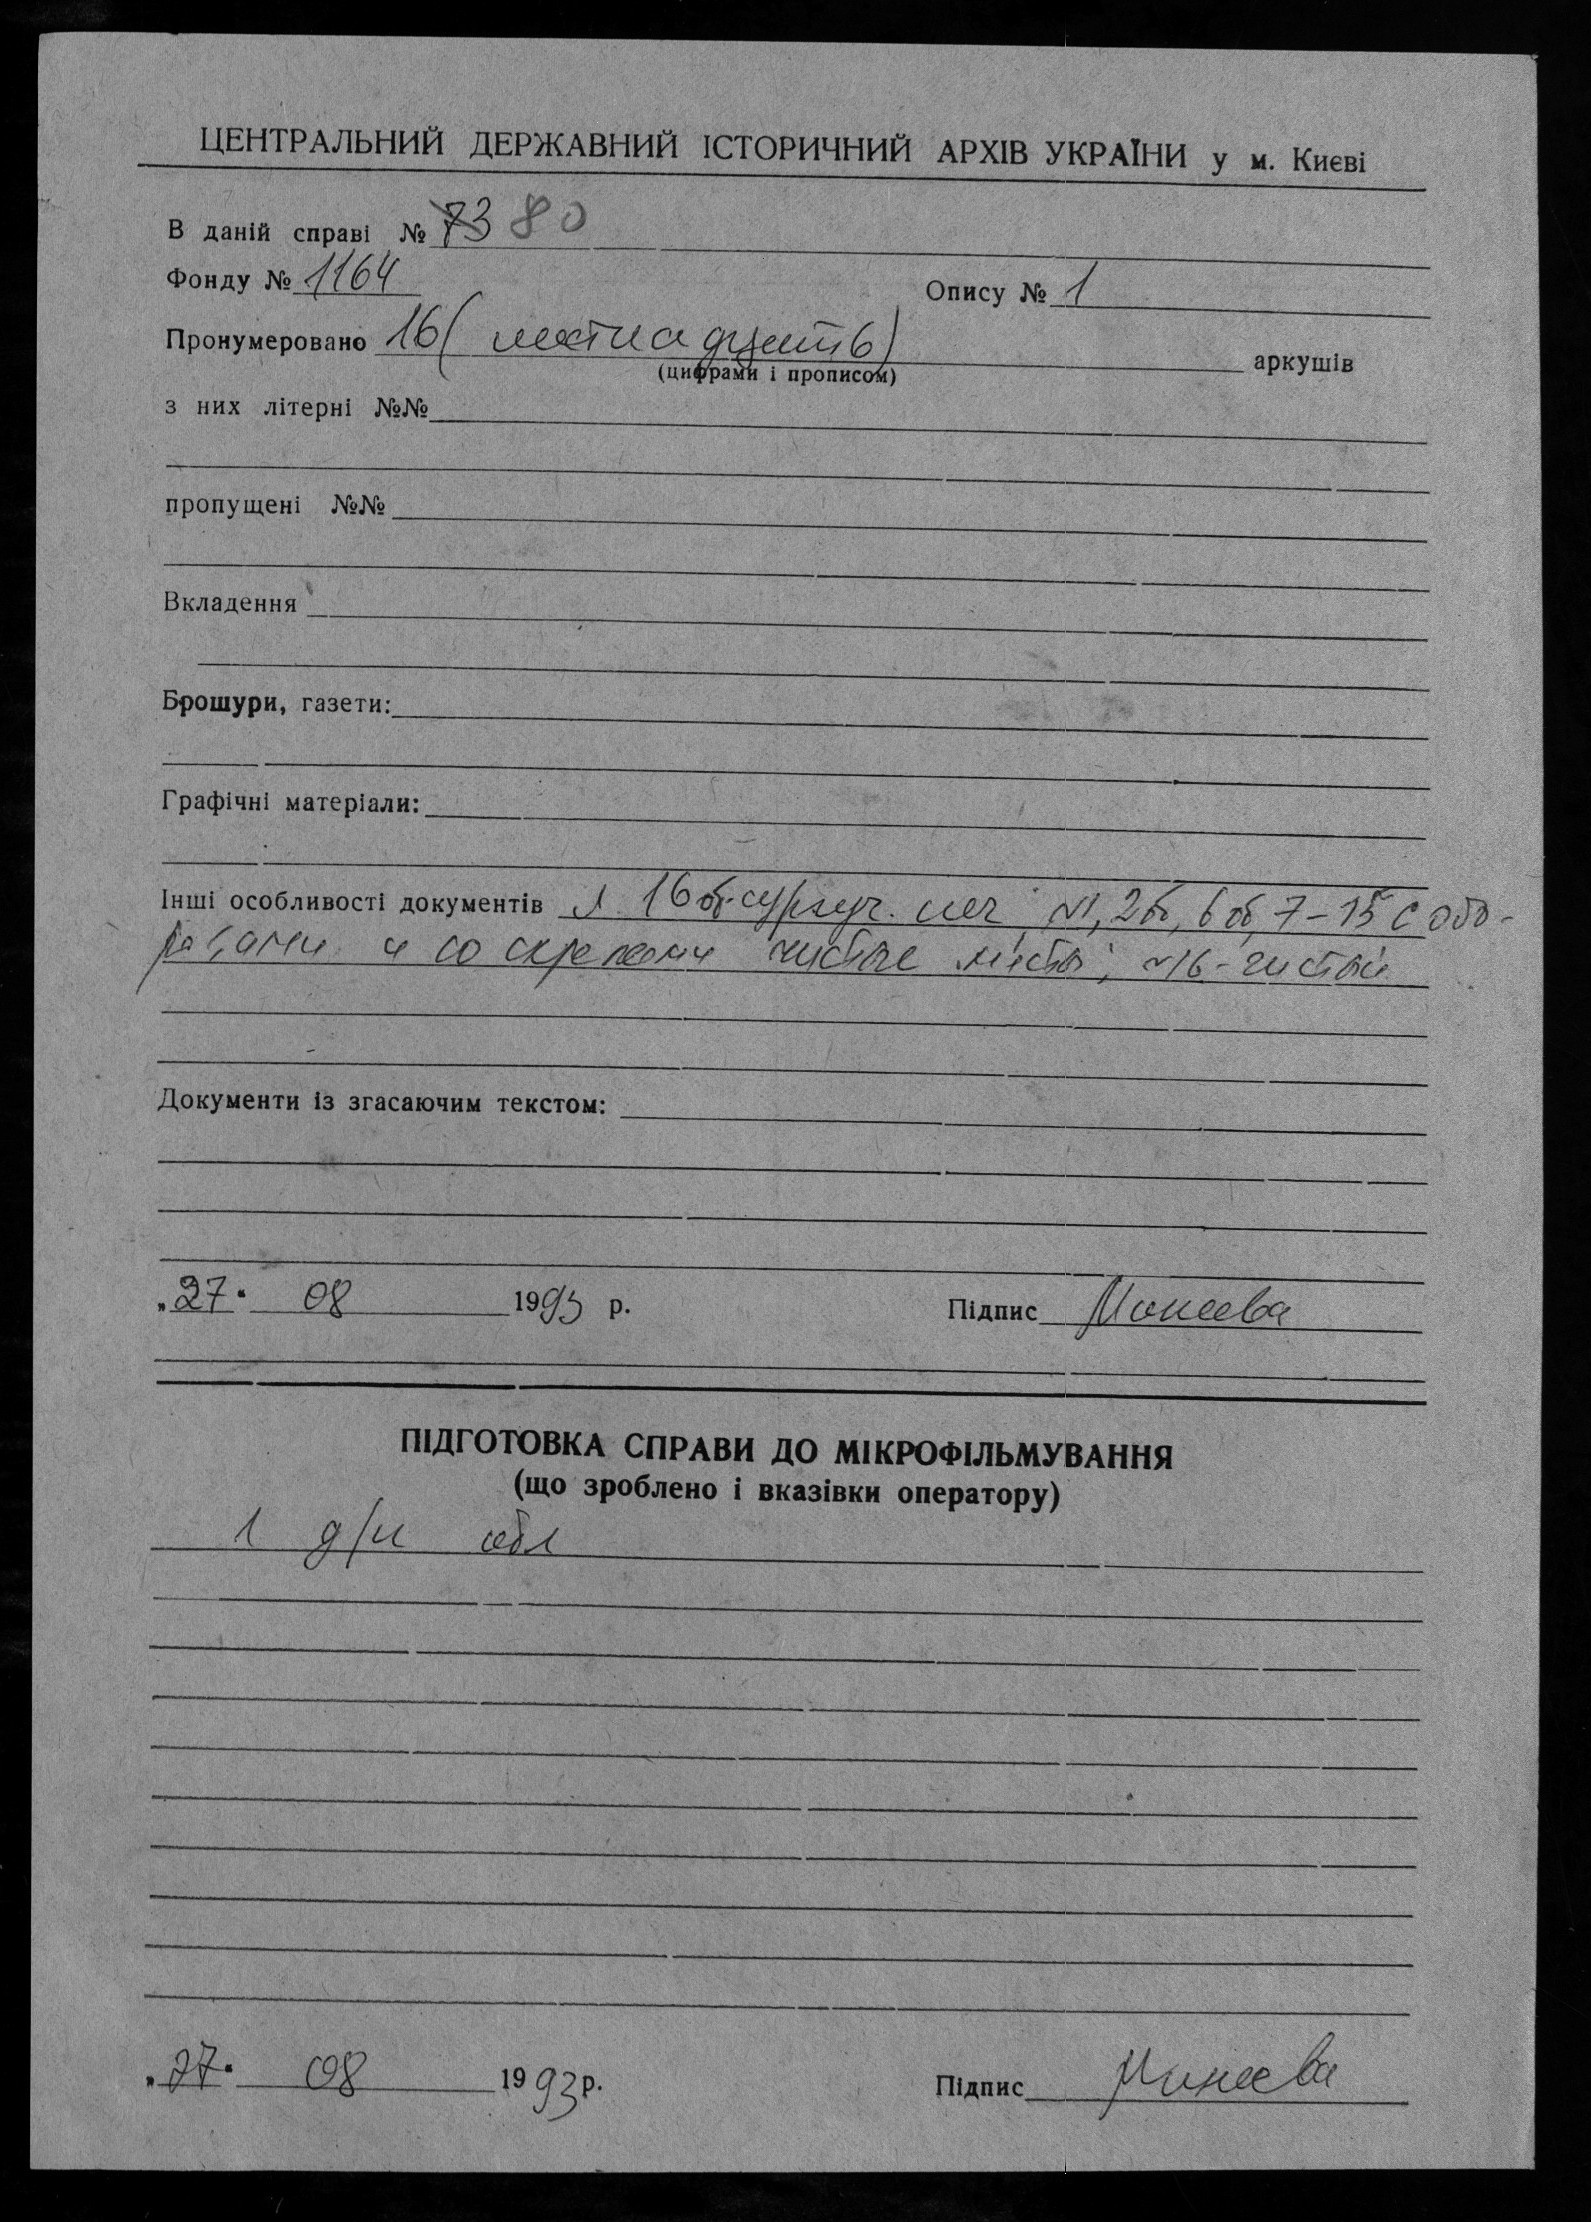 ЦЕНТРАЛЬНИЙ ДЕРЖАВНИЙ ІСТОРИЧНИЙ АРХІВ УКРАЇНИ у м. Києві
В даній справі № 73 80
Фонду № 1164 Опису № 1
Пронумеровано 16 (шестнадцать) аркушів
(цифрами і прописом)
з них літерні №№
пропущені №№
Вкладення
Брошури, газети:
Графічні матеріали:
Інші особливості документів л. 16 об - сургуч. печ, 2об, 6 об, 7-15 с обо-
ротами и со скрепами чистые листы; 16 - чистый
Документи із згасаючим текстом:
„27“ 08 1993 р. Підпис
ПІДГОТОВКА СПРАВИ ДО МІКРОФІЛЬМУВАННЯ
(що зроблено і вказівки оператору)
1 д/н обл
„27“ 08 1993 р. Підпис Минеева